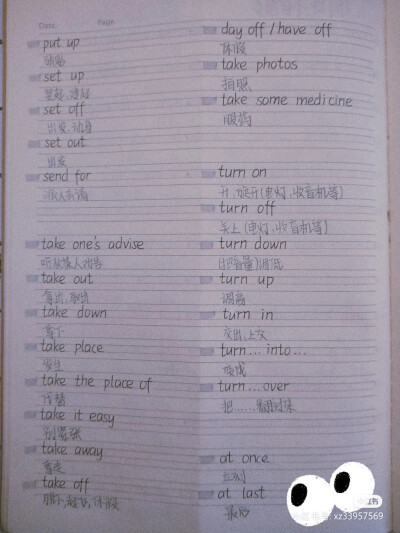 Date. Page
put up
set up
竖起、建起
set off
出发、动身
set out
出发
send for
派人去请
take one's advise
听从某人劝告
take out
拿出、取出
take down
拿下
take place
发生
take the place of
代替
take it easy
别紧张
take away
拿走
take off
脱下、起飞、休假
day off / have off
休假
take photos
拍照
take some medicine
服药
turn on
开、旋开(电灯、收音机等)
turn off
关上(电灯、收音机等)
turn down
(把音量)调低
turn up
调高
turn in
交出、上交
turn...into...
变成
turn...over
把......翻过来
at once
立刻
at last
最后
小红书
xz33957569